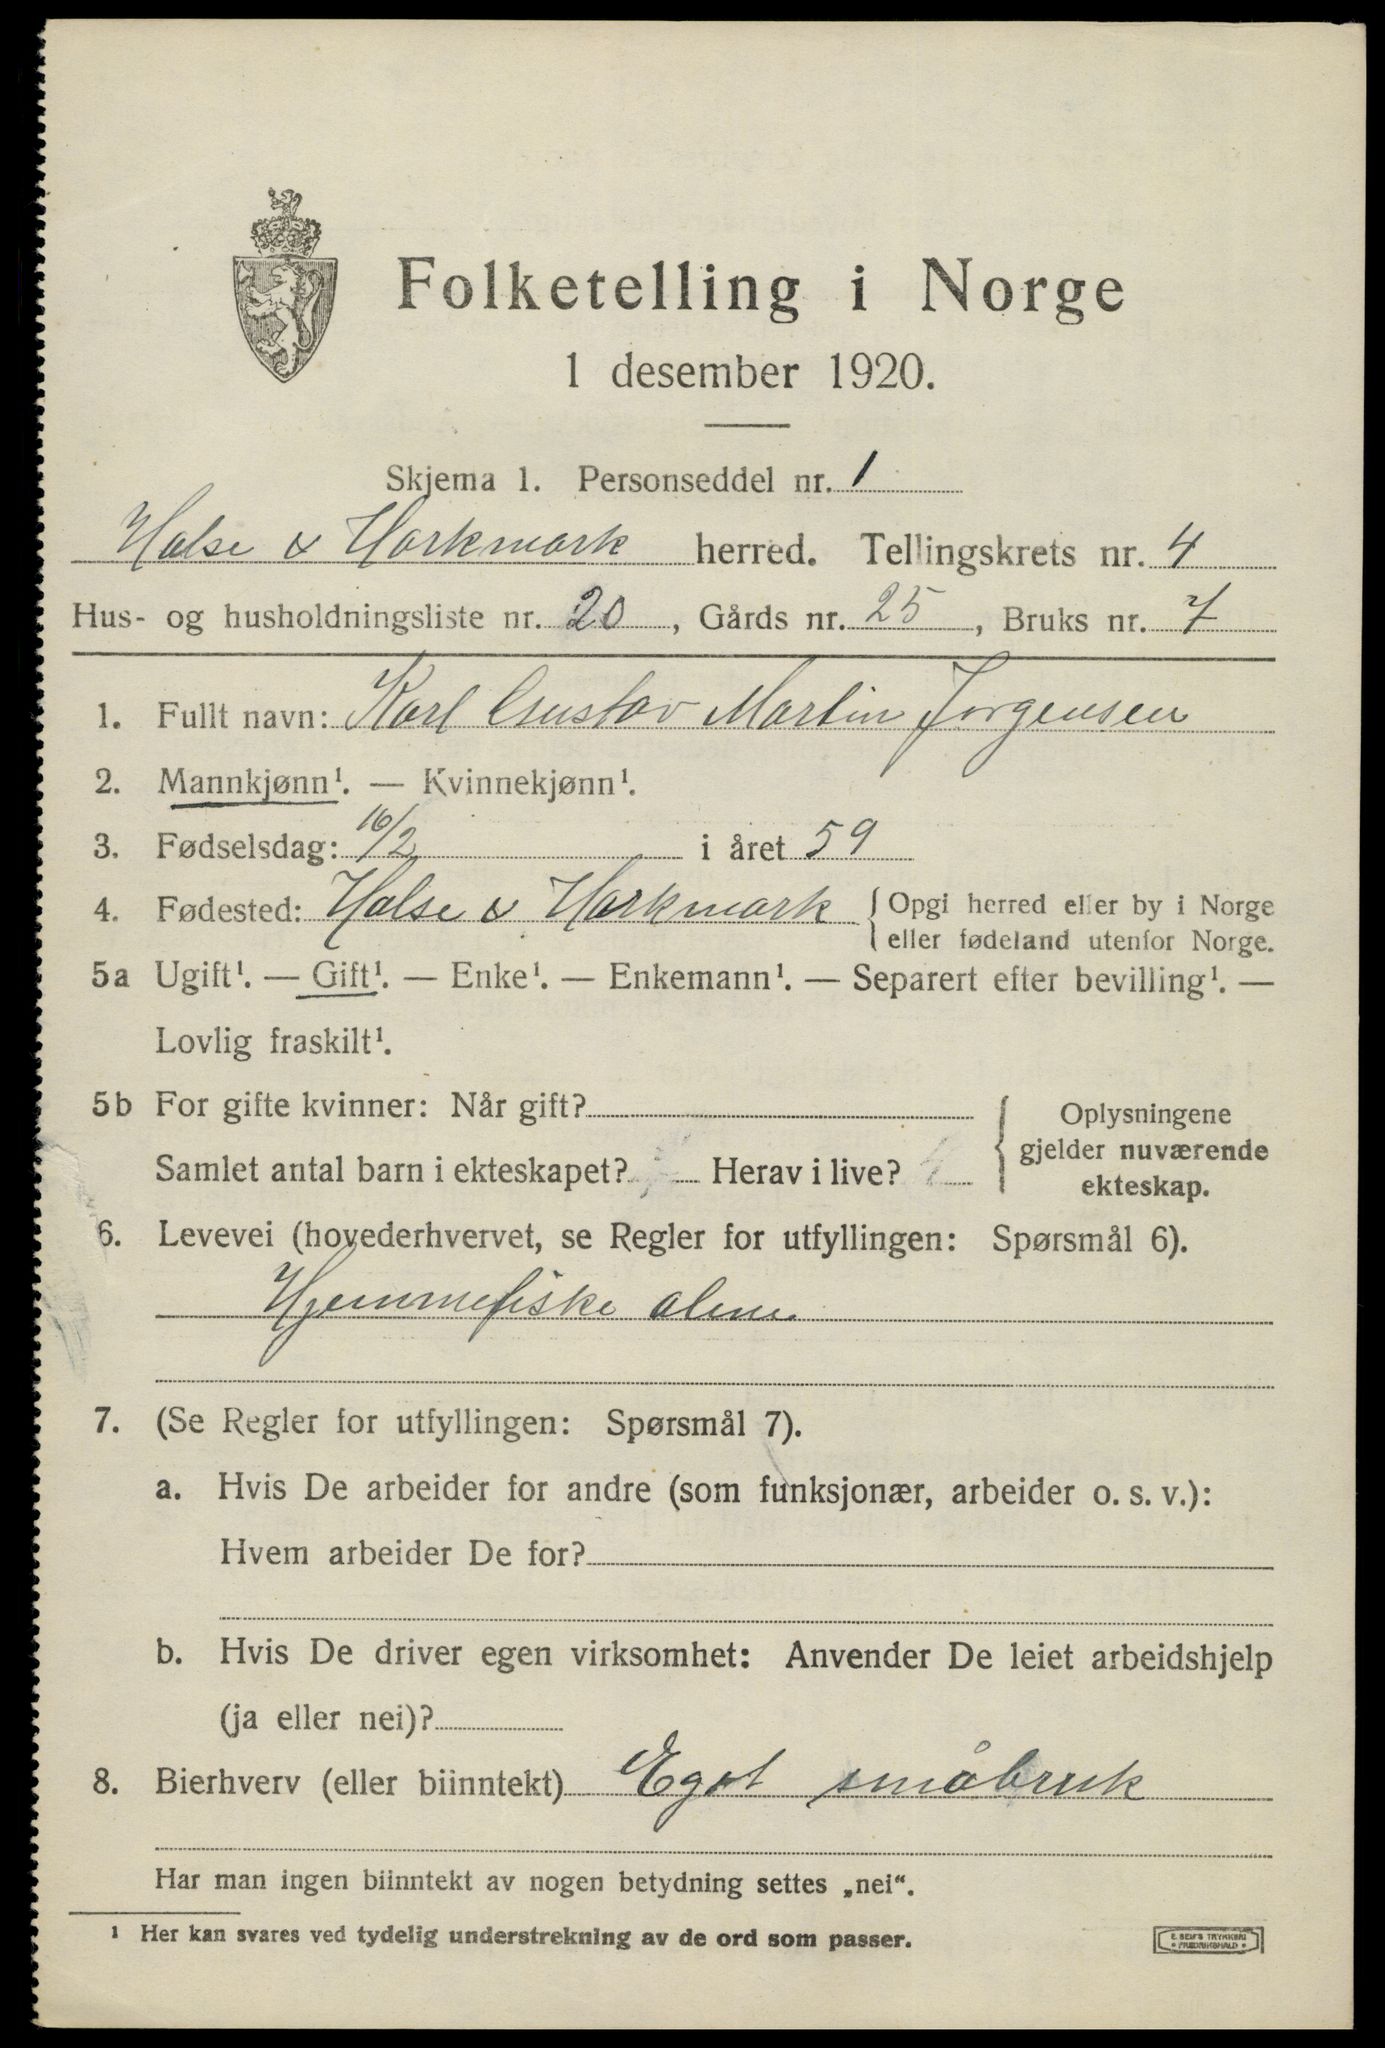 Folketelling i Norge
1 desember 1920.
Skjema 1. Personseddel nr. 1
Halse & Harkmark herred. Tellingskrets nr. 4
Hus- og husholdningsliste nr. 20, Gårds nr. 25, Bruks nr. 7
1. Fullt navn: Karl Gustav Martin Jørgensen
2. Mannkjønn¹. — Kvinnekjønn¹.
3. Fødselsdag: 16/2 i året 59
4. Fødested: Halse & Harkmark { Opgi herred eller by i Norge
eller fødeland utenfor Norge.
5a Ugift¹. — Gift¹. — Enke¹. — Enkemann¹. — Separert efter bevilling¹. —
Lovlig fraskilt¹.
5b For gifte kvinner: Når gift?
Samlet antal barn i ekteskapet? Herav i live?
{ Oplysningene
gjelder nuværende
ekteskap.
6. Levevei (hovederhvervet, se Regler for utfyllingen: Spørsmål 6).
Hjemmefiske alene
7. (Se Regler for utfyllingen: Spørsmål 7).
a. Hvis De arbeider for andre (som funksjonær, arbeider o. s. v.):
Hvem arbeider De for?
b. Hvis De driver egen virksomhet: Anvender De leiet arbeidshjelp
(ja eller nei)?
8. Bierhverv (eller biinntekt) Eget småbruk
Har man ingen biinntekt av nogen betydning settes „nei“.
¹ Her kan svares ved tydelig understrekning av de ord som passer.
E. SEM'S TRYKKERI
• FREDRIKSHALD •